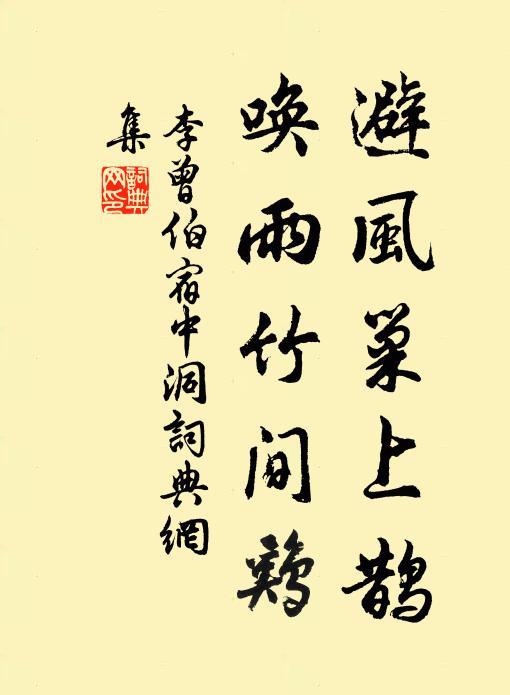 避風巢上鵲
喚雨竹間鷄
李曾伯宿中洞詞典網
集
詞典網印